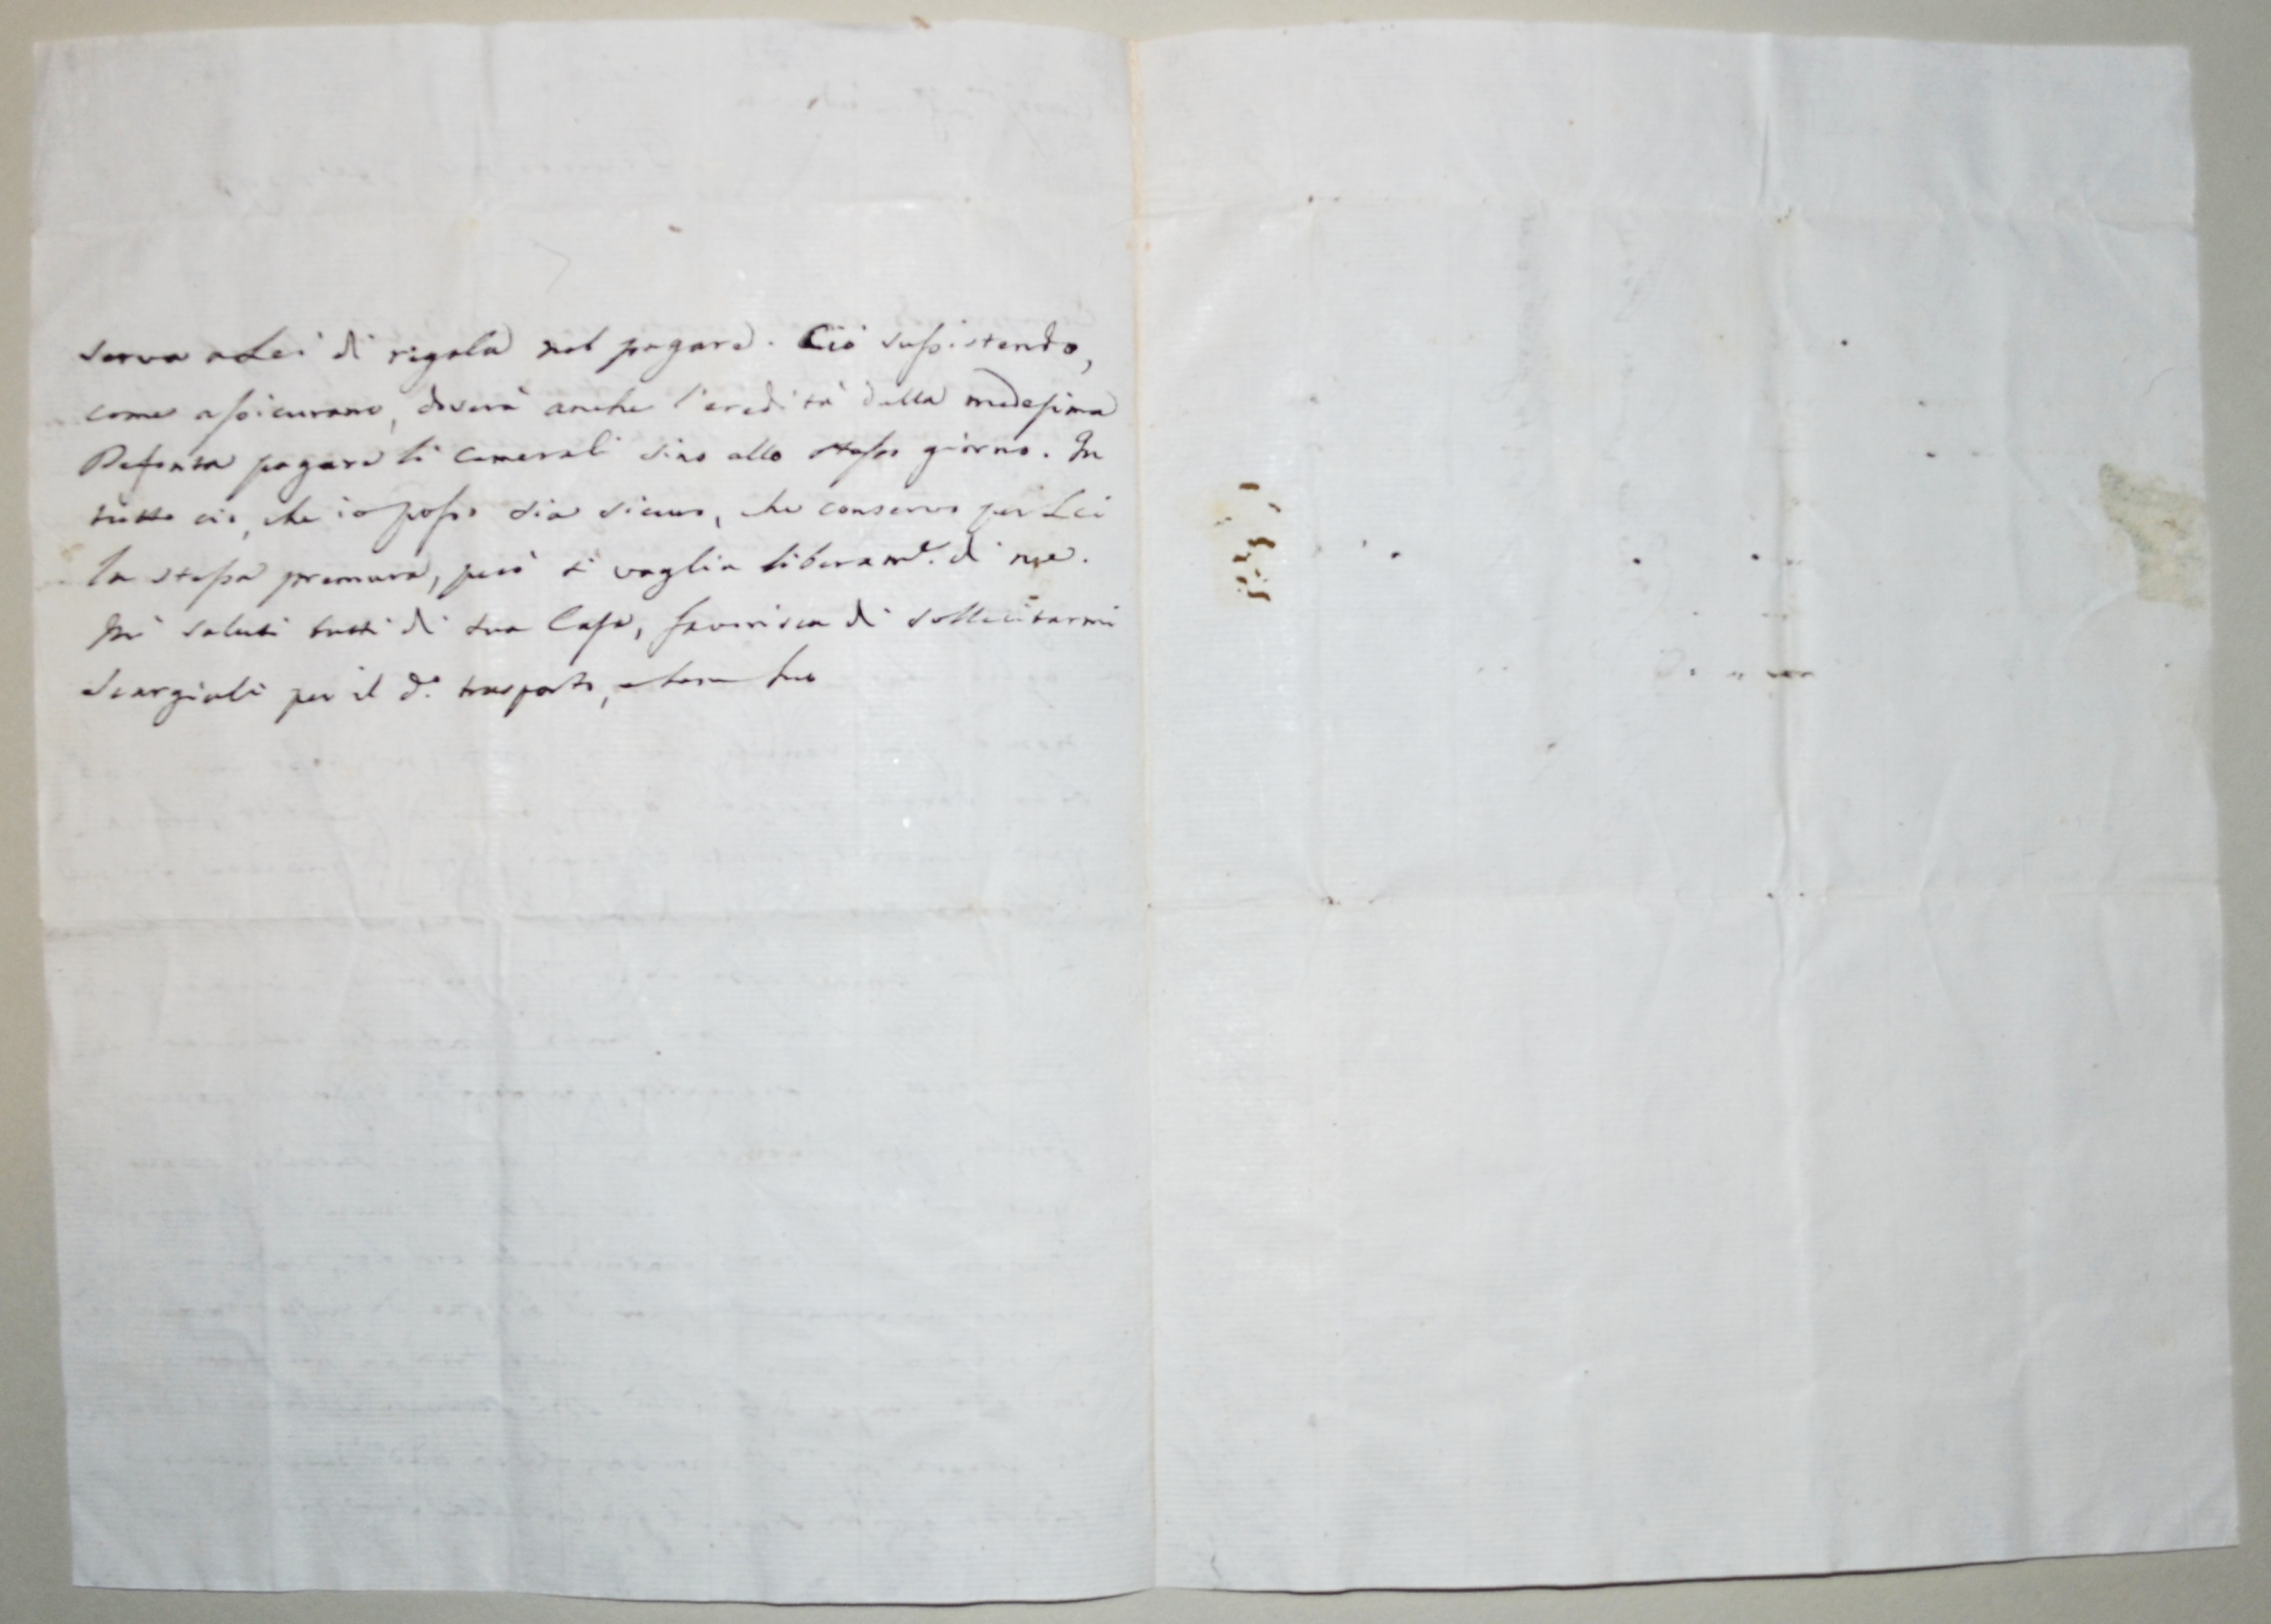 serva a Lei di regola nel pagare. Ciò sussistendo,
come assicurano, doverà anche l'eredità della medesima
Defonta pagare li Camerali sino allo stesso giorno. In
tutto ciò, che io posso sia sicuro, che conservo per Lei
la stessa premura, però si vaglia liberam.e di me.
Mi saluti tutti di sua Casa, favorisca di sollecitarmi
Scargiali per il d.o trasporto,